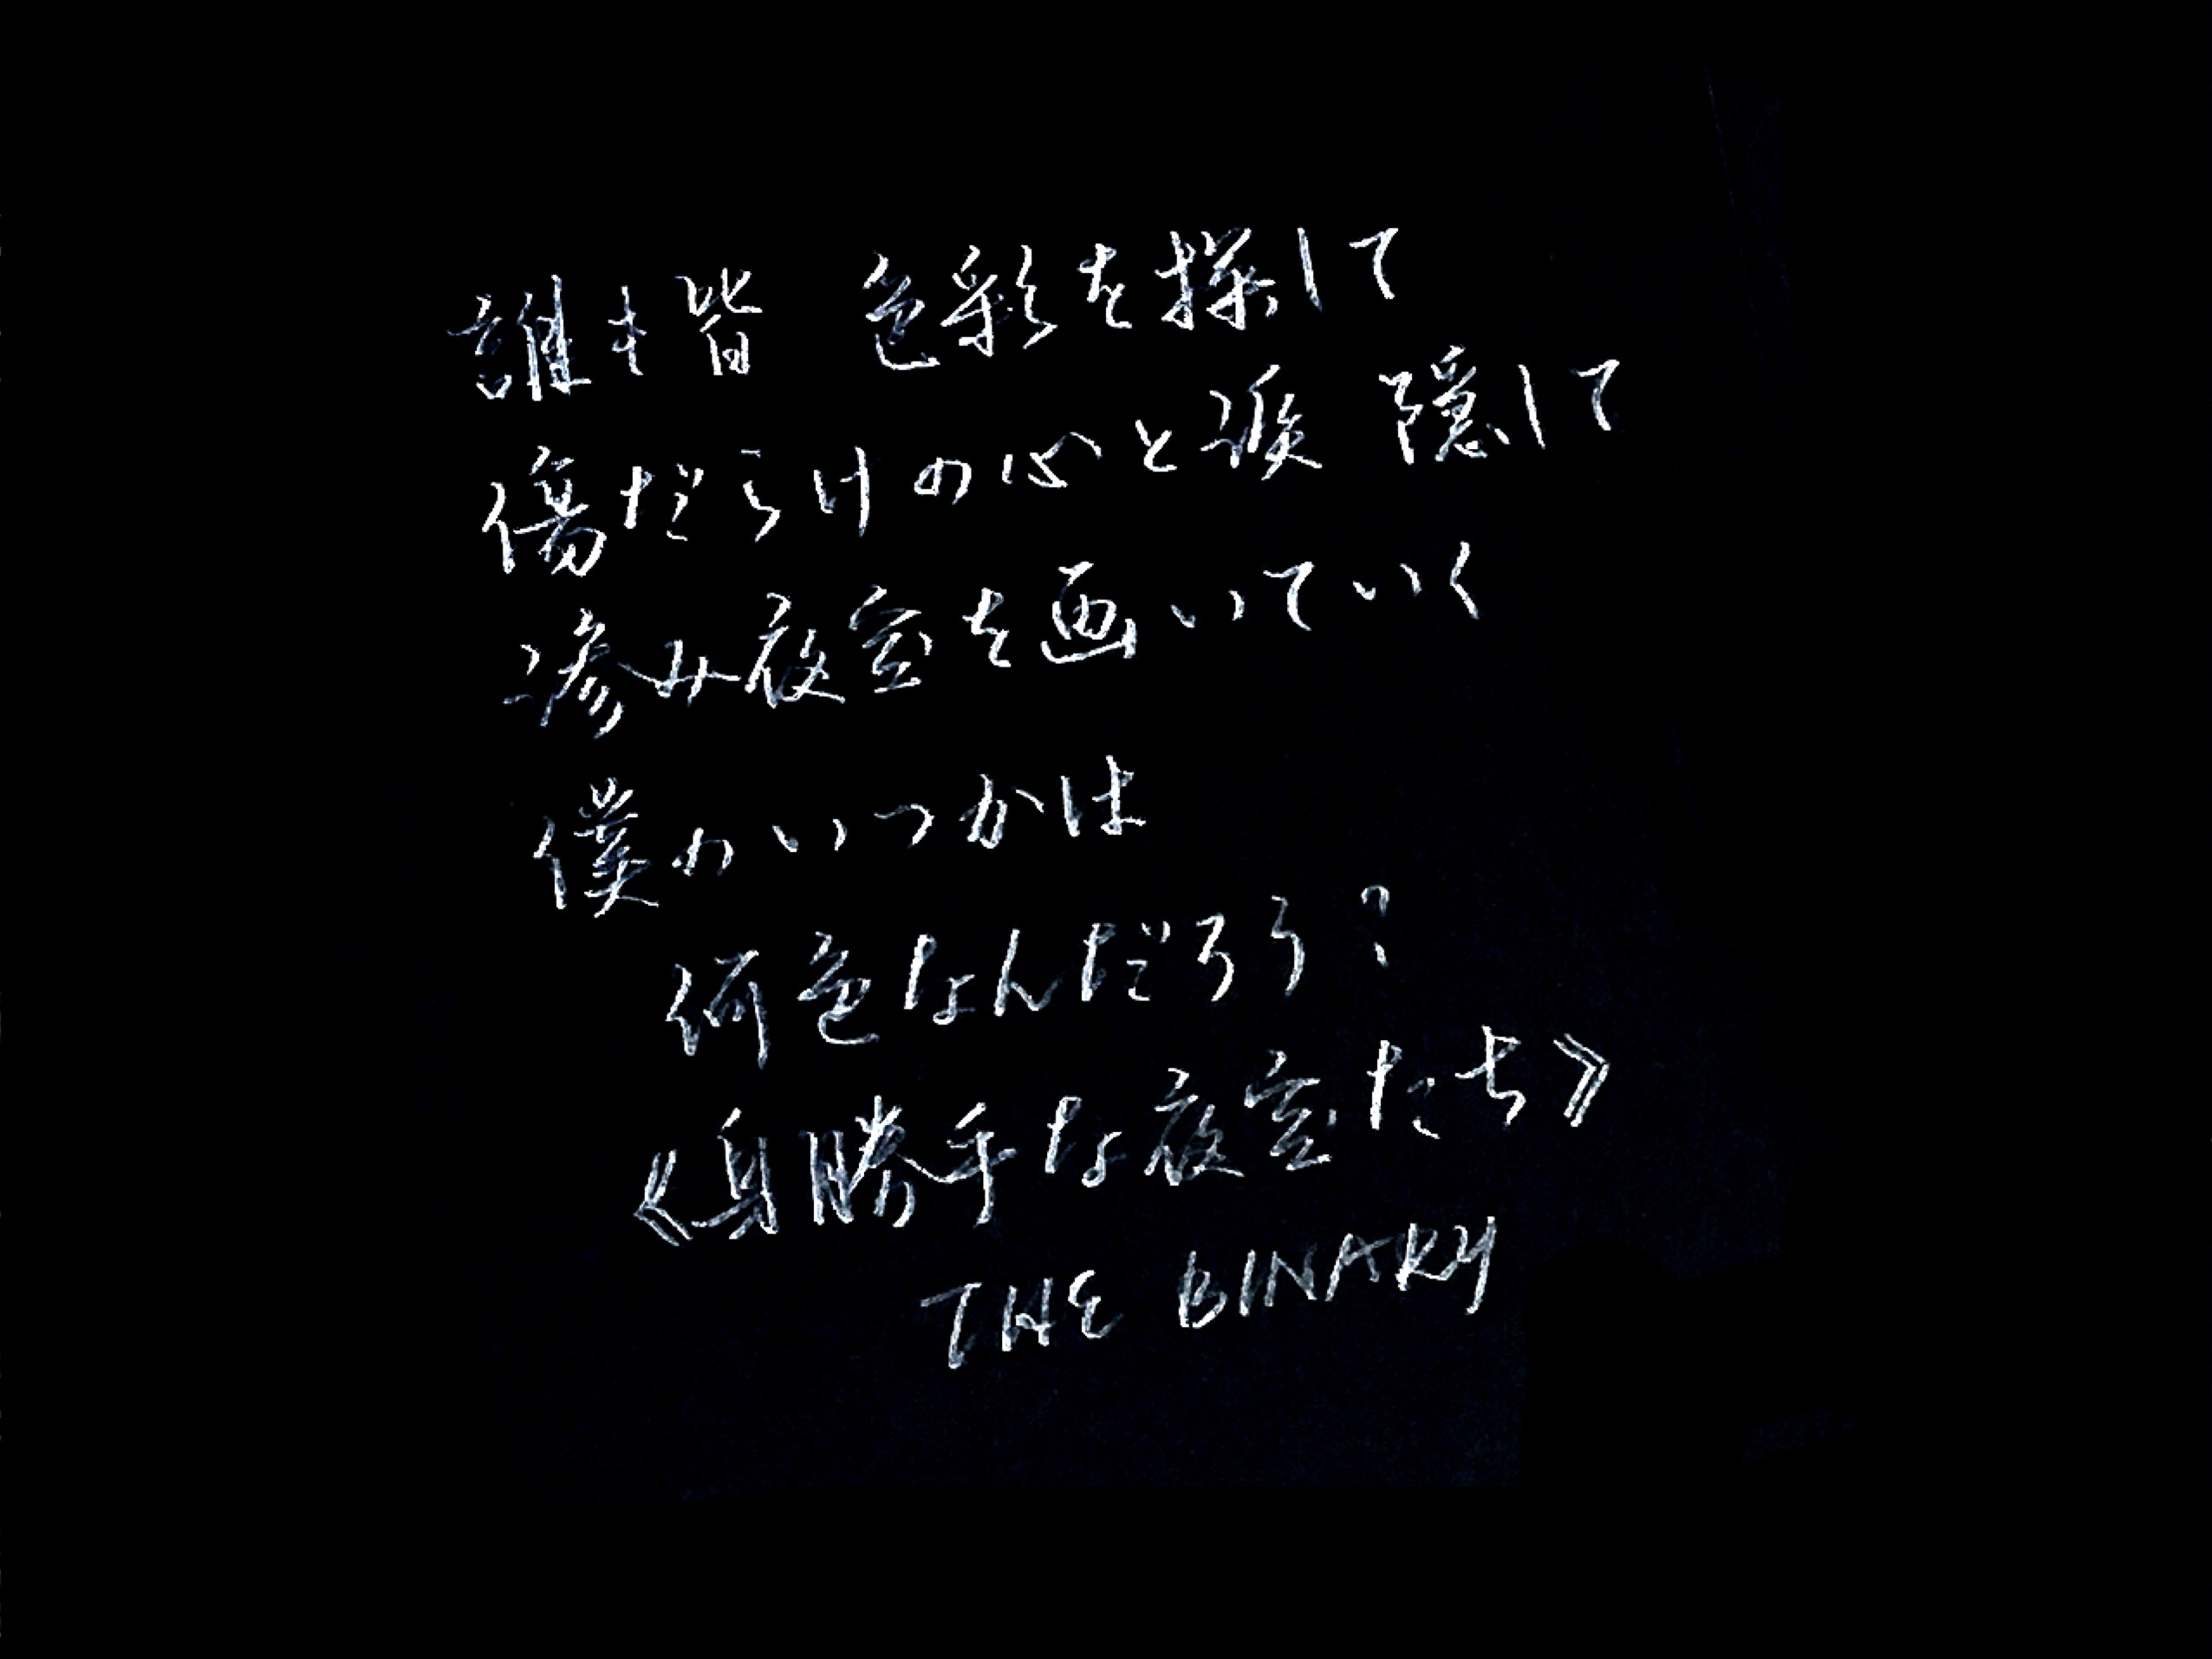 誰も皆 色彩を探して
傷だらけの心と涙 隠して
滲み夜空を画いていく
僕のいつかは
何色なんだろう?
《身勝手な夜空たち》
THE BINARY